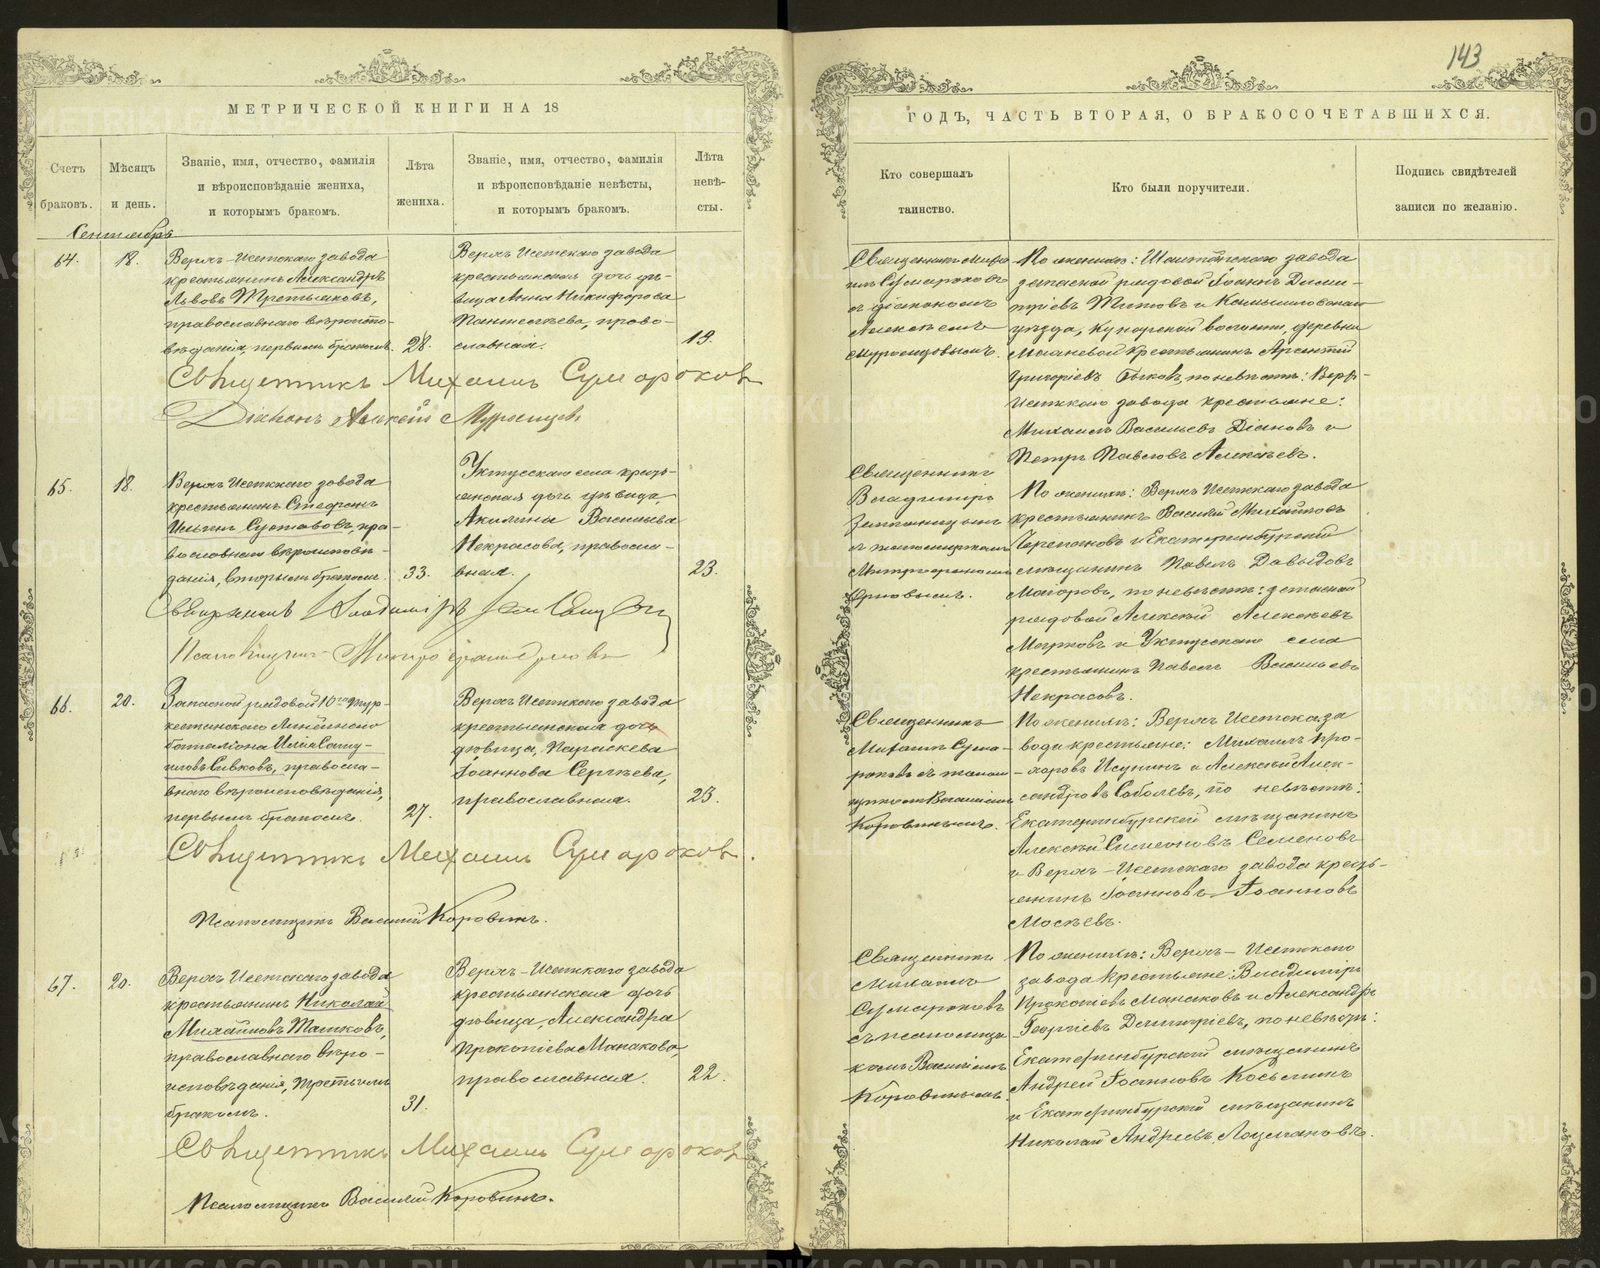 143
МЕТРИЧЕСКОЙ КНИГИ НА 18
ГОДЪ, ЧАСТЬ ВТОРАЯ, О БРАКОСОЧЕТАВШИХСЯ.
Счетъ
браковъ.
Мѣсяцъ
и день.
Званіе, имя, отчество, фамилія
и вѣроисповѣданіе жениха,
и которымъ бракомъ.
Лѣта
жениха.
Званіе, имя, отчество, фамилія
и вѣроисповѣданіе невѣсты,
и которымъ бракомъ.
Лѣта
невѣ-
сты.
Кто совершалъ
таинство.
Кто были поручители.
Подпись свидѣтелей
записи по желанію.
Сентябрь
64.
18.
Верхъ-Исетскаго завода
крестьянинъ Александръ
Львовъ Третьяковъ,
православнаго вѣроиспо-
вѣданія, первымъ бракомъ.
28.
Верхъ Исетскаго завода
крестьянская дочь дѣ-
вица Анна Никифорова
Пантелѣева, право-
славная.
19.
Священникъ Миха-
илъ Сумароковъ
съ діакономъ
Алексѣемъ
Мурзинцовымъ.
По женихѣ: Шайтанскаго завода
запасной рядовой Іоаннъ Дими-
тріевъ Титовъ и Камышловскаго
уѣзда, Куяровской волости, деревни
крестьянинъ Арсентій
Григорьевъ Быковъ, по невѣстѣ: Верхъ-
Исетскаго завода крестьяне:
Михаилъ Васильевъ Діановъ и
Петръ Павловъ Алексѣевъ.
Священникъ Михаилъ Сумароковъ
Діаконъ Алексѣй Мурзинцовъ
65.
18.
Верхъ Исетскаго завода
крестьянинъ Стефанъ
Ильинъ Суставовъ, пра-
вославнаго вѣроисповѣ-
данія, вторымъ бракомъ.
33.
Уктусскаго села кресть-
янская дочь дѣвица
Акилина Васильева
Некрасова, правосла-
вная.
23.
Священникъ
Владиміръ
Земляницынъ
съ псаломщикомъ
Митрофаномъ
Орловымъ.
По женихѣ: Верхъ Исетскаго завода
крестьянинъ Василій Михайловъ
Черепановъ и Екатеринбургскій
мѣщанинъ Павелъ Давыдовъ
Маіоровъ, по невѣстѣ: запасной
рядовой Алексѣй Алексѣевъ
Марковъ и Уктусскаго села
крестьянинъ Павелъ Васильевъ
Некрасовъ.
Священникъ Владиміръ Земляницынъ
Псаломщикъ Митрофанъ Орловъ
66.
20.
Запасной рядовой 10го Тур-
кестанскаго Линейнаго
баталіона Илія Саму-
иловъ Сивковъ, правосла-
внаго вѣроисповѣданія,
первымъ бракомъ.
27.
Верхъ Исетскаго завода
крестьянская дочь
дѣвица, Параскева
Іоаннова Сергѣева,
православная.
23.
Священникъ
Михаилъ Сума-
роковъ съ псалом-
щикомъ Василіемъ
Коровинымъ.
По женихѣ: Верхъ Исетска за
вода крестьяне: Михаилъ Про-
хоровъ Исунинъ и Алексѣй Алек-
сандровъ Соболевъ, по невѣстѣ:
Екатеринбургскій мѣщанинъ
Алексѣй Симеоновъ Семеновъ
и Верхъ-Исетскаго завода кресть-
янинъ Іоанновъ Іоанновъ
Мосѣевъ.
Священникъ Михаилъ Сумароковъ.
Псаломщикъ Василій Коровинъ.
67.
20.
Верхъ Исетскаго завода
крестьянинъ Николай
Михайловъ Ташковъ,
православнаго вѣро-
исповѣданія, третьимъ
бракомъ.
31.
Верхъ-Исетскаго завода
крестьянская дочь
дѣвица, Александра
Прокопіева Манакова,
православная.
22.
Священникъ
Михаилъ
Сумароковъ
съ псаломщи-
комъ Василіемъ
Коровинымъ.
По женихѣ: Верхъ-Исетскаго
завода крестьяне: Владиміръ
Прокопіевъ Манаковъ и Александръ
Георгіевъ Димитріевъ, по невѣстѣ:
Екатеринбургскій мѣщанинъ
Андрей Іоанновъ Косьминъ
и Екатеринбургскій мѣщанинъ
Николай Андреевъ Лоцмановъ.
Священникъ Михаилъ Сумароковъ
Псаломщикъ Василій Коровинъ.